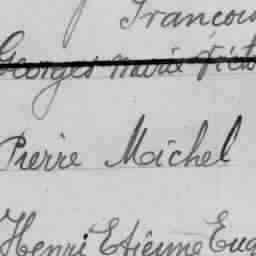 François
Georges Marie Victo
Pierre Michel
Henri Etienne Eug